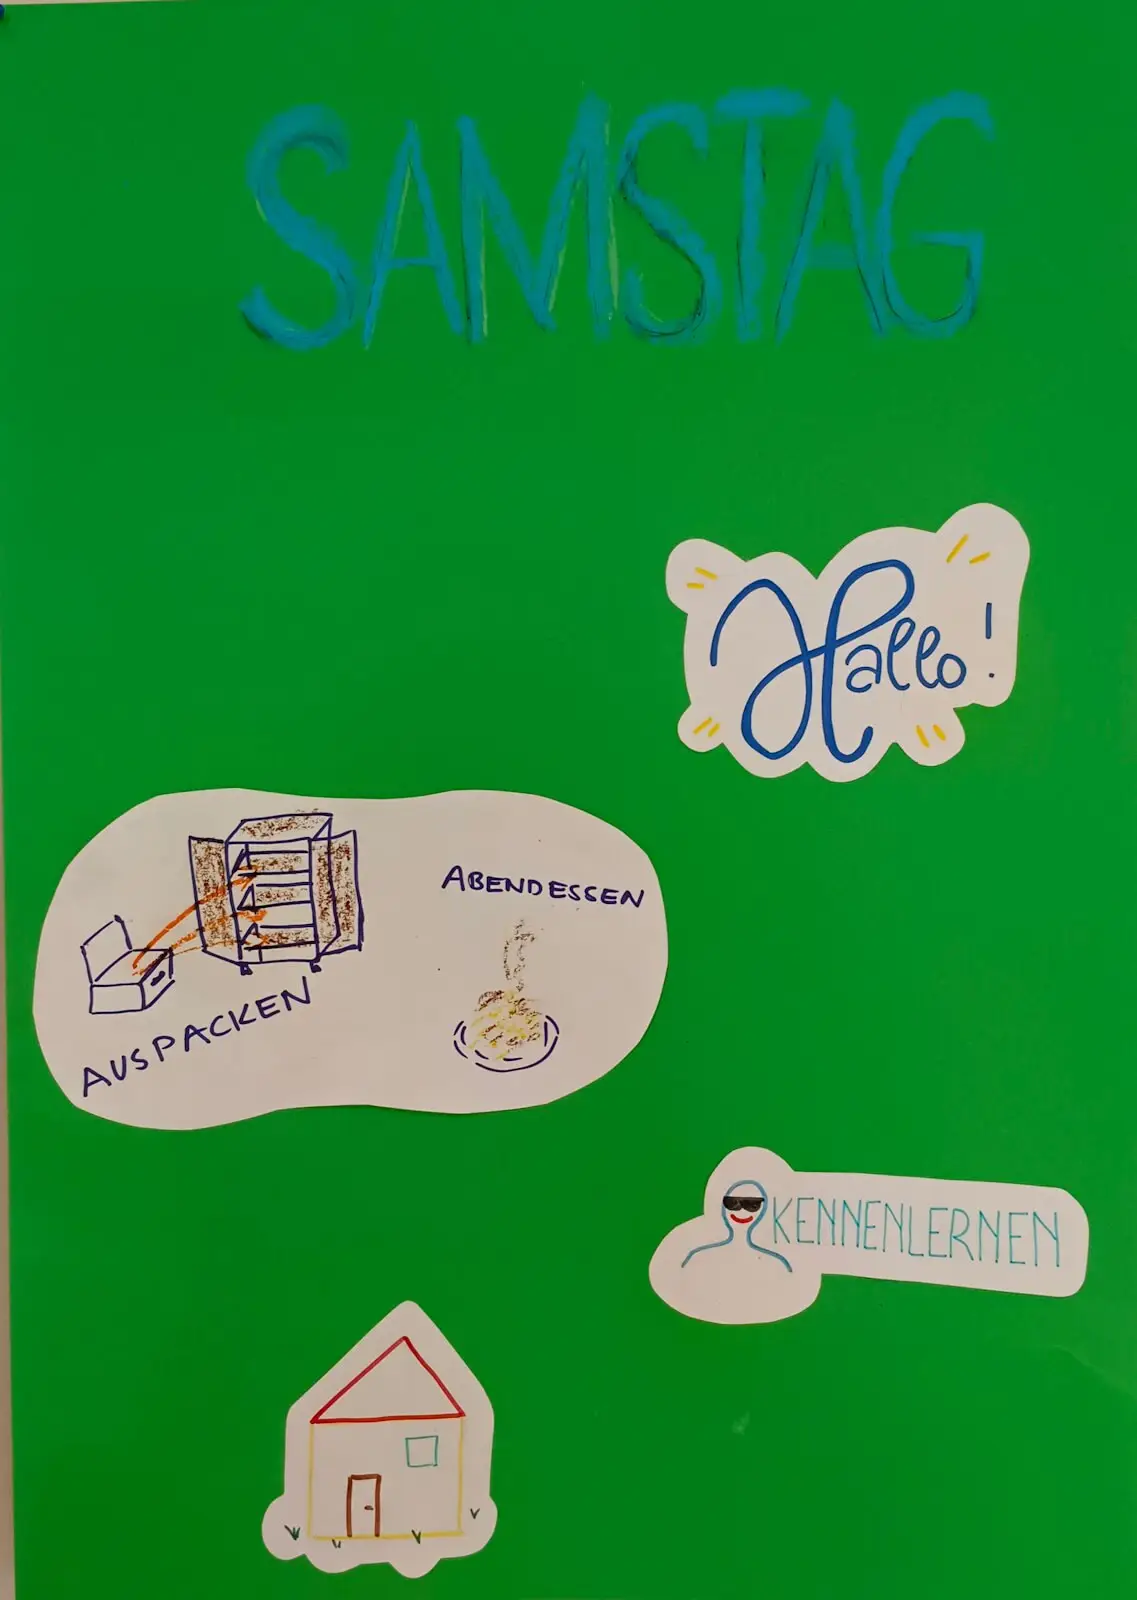 SAMSTAG
Hallo!
ABENDESSEN
AUSPACKEN
KENNENLERNEN